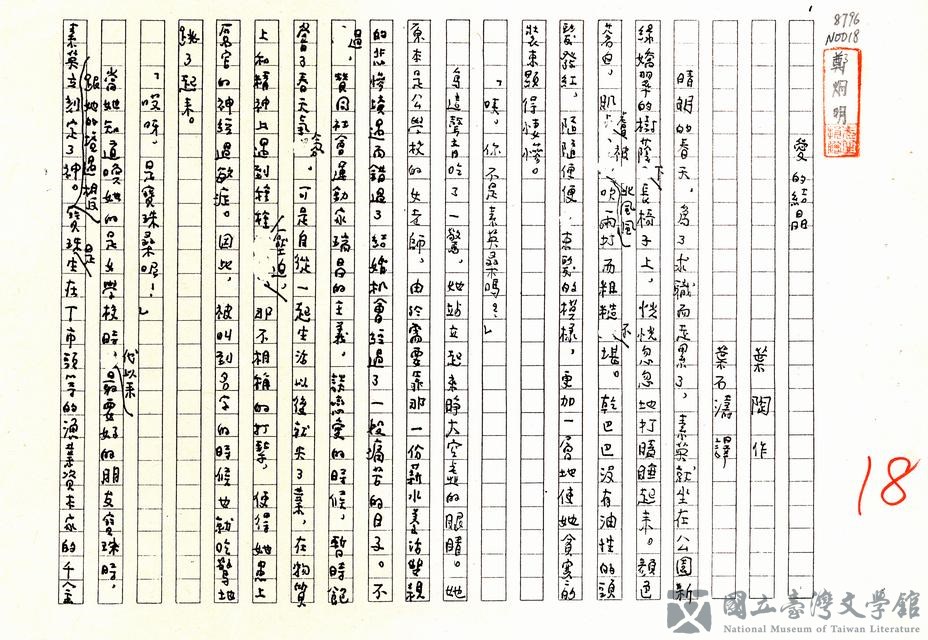 8796
N0018
鄭烱明
愛的結晶
葉陶作
葉石濤譯
晴朗的春天，為了求職而走累了，素英就坐在公園新
綠嬌翠的樹蔭下長椅子上，恍恍忽忽地打瞌睡起來。顏色
蒼白，肌膚被北風風吹雨打而粗糙不堪。乾巴巴沒有油性的頭
髮發紅，隨隨便便束髮的模樣，更加一層地使她貧寒的
裝束顯得悽慘。
「咦。你不是素英桑嗎？」
為這聲音吃了一驚，她站立起來睜大空虛的眼睛。她
原本是公學校的女老師，由於需要靠那一份薪水養活雙親
的悲慘境遇而錯過了結婚机會經過了一段痛苦的日子。不
過，贊同社會運動家瑞昌的主義，談戀愛的時候，暫時飽
嘗了春天氣氛。可是自從一起生活以後就失了業，在物質
上和精神上遇到種種壓迫，那不相稱的打擊，使得她患上
厲害的神經過敏症。因此，被叫到名字的時候她就吃驚地
跳了起來。
「哎呀，是寶珠桑呢！」
當她知道喚她的是女學校時代以來最要好的朋友寶珠時，
素英立刻定了神。跟她的境遇相反寶珠是生在丁市頭等的漁業資本家的千金
18
國立臺灣文學館
National Museum of Taiwan Literature